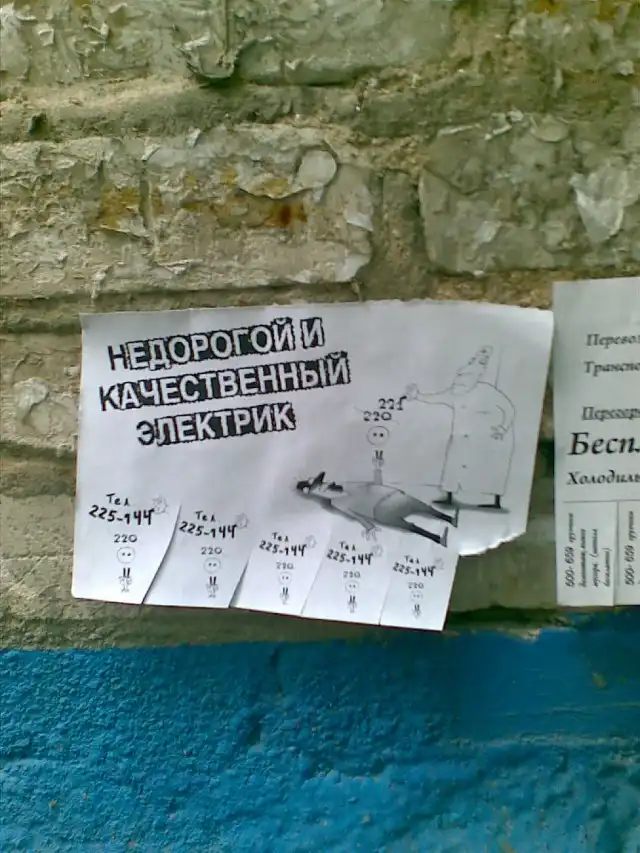 НЕДОРОГОЙ И
КАЧЕСТВЕННЫЙ
ЭЛЕКТРИК
221
220
Тел
225-144
220
Тел
225-144
220
Тел
225-144
220
Тел
225-144
220
Тел
225-144
220
Перевоз
Трансп
Бесп
Холодиль
500-659
500-659